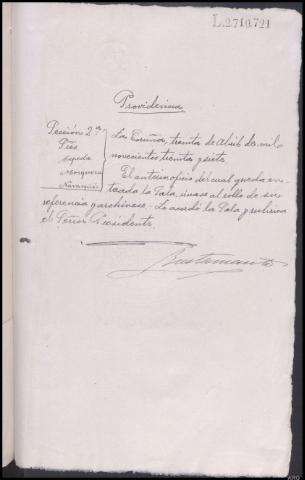 L.2.710.721
Providencia
Sección 2ª
Srs
Cepeda
Mosquera
Navarro
La Coruña, treinta de Abril de mil
novecientos treinta y siete.
El anterior oficio del cual queda en-
terada la Sala, únase al rollo de su
referencia y archívese. Lo acordó la Sala y rubrica
el Señor Presidente.
Bustamante